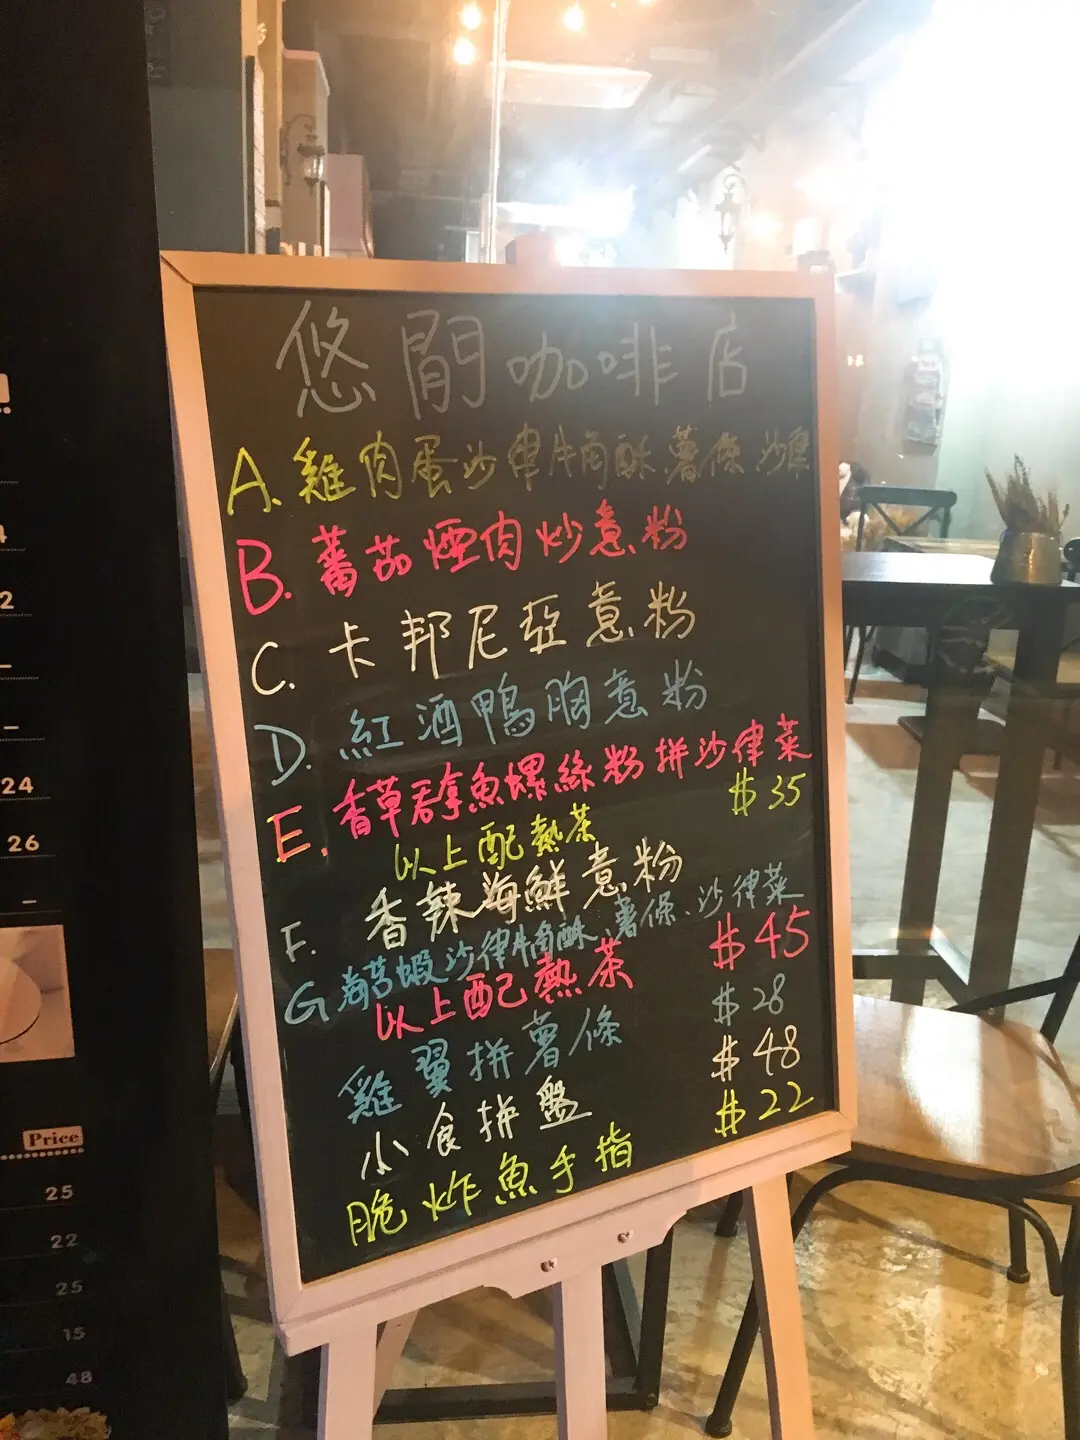 悠閒咖啡店
A. 雞肉蛋沙律牛角酥、薯條、沙律
B. 蕃茄煙肉炒意粉
C. 卡邦尼亞意粉
D. 紅酒鴨胸意粉
E. 香草吞拿魚螺絲粉拼沙律菜
以上配熱茶 $35
F. 香辣海鮮意粉
G 海苔蝦沙律牛角酥、薯條、沙律菜
以上配熱茶 $45
雞翼拼薯條 $28
小食拼盤 $48
脆炸魚手指 $22
2
24
26
Price
25
22
25
15
48